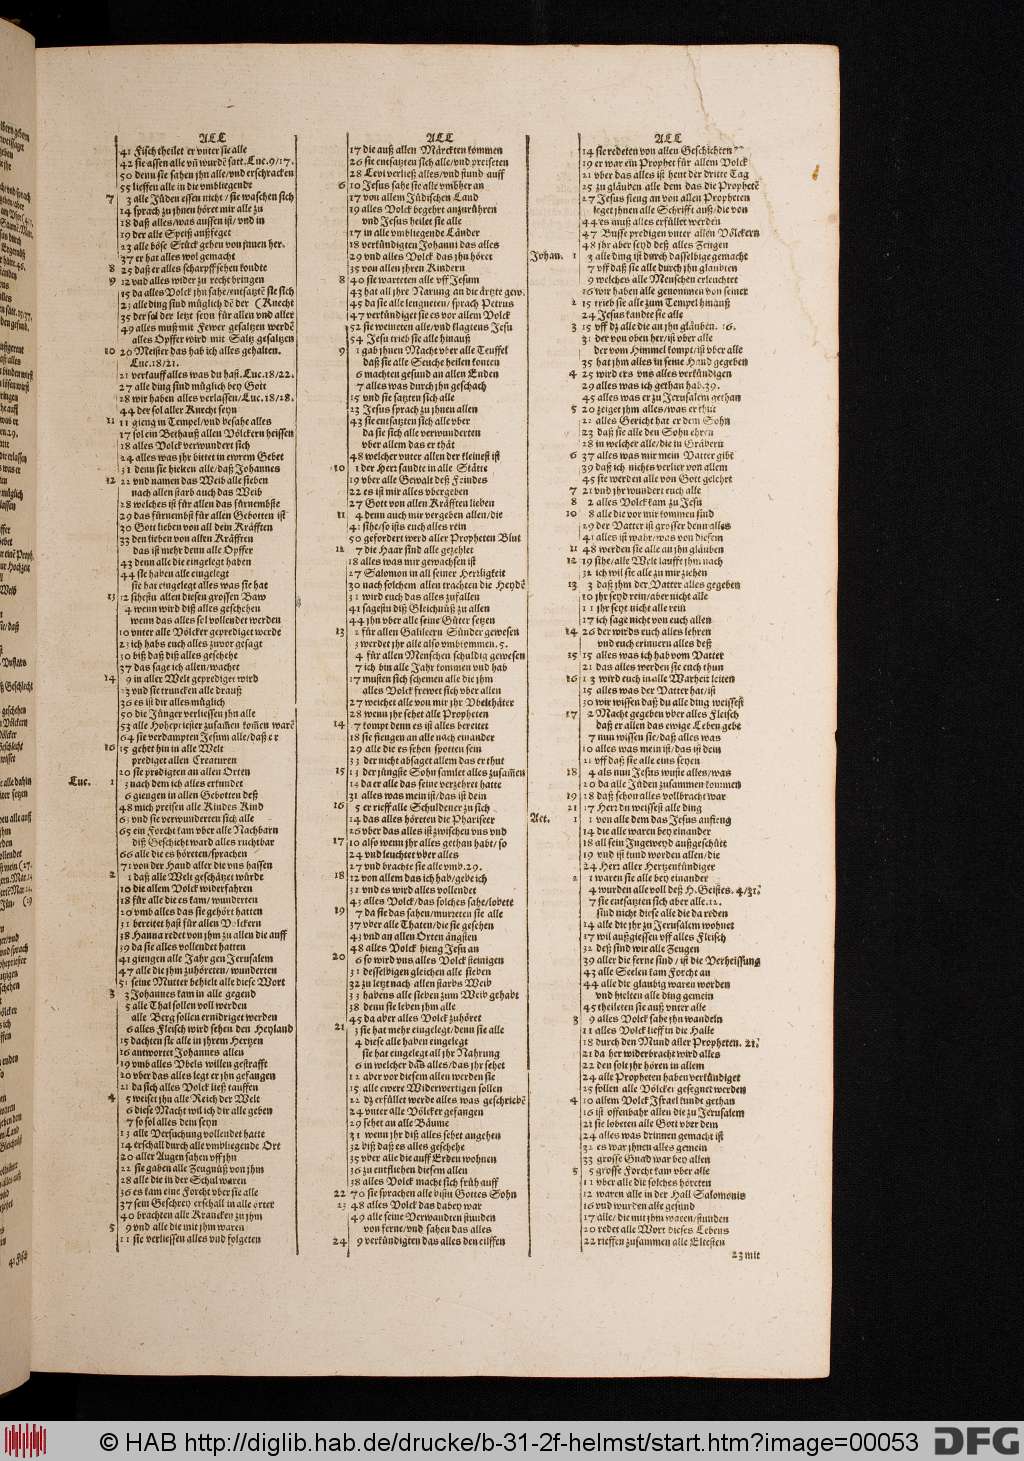 ALL
41 Fisch theilet er vnter sie alle
42 sie assen alle vñ wurdẽ satt. Luc. 9/17.
50 denn sie sahen jhn alle/vnd erschracken
55 lieffen alle in die vmbliegende
7 3 alle Jüden essen nicht/sie waschen sich
14 sprach zu jhnen höret mir alle zu
18 daß alles/was aussen ist/vnd in
19 der alle Speiß außfeget
23 alle böse Stück gehen von jnnen her.
37 er hat alles wol gemacht
8 25 daß er alles scharpff sehen kondte
9 12 vnd alles wider zu recht bringen
15 da alles Volck jhn sahe/entsatztẽ sie sich
23 alle ding sind müglich dẽ der (Knecht
35 der sol der letzt seyn für allen vnd aller
49 alles muß mit Fewer gesaltzen werdẽ
alles Opffer wird mit Saltz gesaltzen
10 20 Meister das hab ich alles gehalten.
Luc. 18/21.
21 verkauff alles was du hast. Luc. 18/22.
27 alle ding sind müglich bey Gott
28 wir haben alles verlassen/Luc. 18/28.
44 der sol aller Knecht seyn
11 11 gieng in Tempel/vnd besahe alles
17 sol ein Bethauß allen Völckern heissen
18 alles Volck verwundert sich
24 alles was jhr bittet in ewrem Gebet
32 denn sie hielten alle/daß Johannes
12 22 vnd namen das Weib alle sieben
nach allen starb auch das Weib
28 welches ist für allen das fürnembste
29 das fürnembst für allen Gebotten ist
30 Gott lieben von all dein Kräfften
33 den lieben von allen Kräfften
das ist mehr denn alle Opffer
43 denn alle die eingelegt haben
44 sie haben alle eingelegt
sie hat eingelegt alles was sie hat
13 2 sihestu allen diesen grossen Baw
4 wenn wird diß alles geschehen
wenn das alles sol vollendet werden
10 vnter alle Völcker geprediget werde
23 ich habs euch alles zuvor gesagt
30 biß daß diß alles geschehe
37 das sage ich allen/wachet
14 9 in aller Welt geprediget wird
23 vnd sie truncken alle drauß
36 es ist dir alles müglich
50 die Jünger verliessen jhn alle
53 alle Hohepriester zusam̃en kom̃en warẽ
64 sie verdampten Jesum alle/daß er
16 15 gehet hin in alle Welt
prediget allen Creaturen
20 sie predigten an allen Orten
Luc. 1 3 nach dem ich alles erkundet
6 giengen in allen Gebotten deß
48 mich preisen alle Kindes Kind
63 vnd sie verwunderten sich alle
65 ein Forcht kam vber alle Nachbarn
diß Geschicht ward alles ruchtbar
66 alle die es höreten/sprachen
71 von der Hand aller die vns hassen
2 1 daß alle Welt geschätzet würde
10 die allem Volck widerfahren
18 für alle die es kam/wunderten
20 vmb alles das sie gehört hatten
31 bereitet hast für allen Völckern
38 Hanna redet von jhm zu allen die auff
39 da sie alles vollendet hatten
41 giengen alle Jahr gen Jerusalem
47 alle die jhm zuhöreten/wunderten
51 seine Mutter behielt alle diese Wort
3 3 Johannes kam in alle gegend
5 alle Thal sollen voll werden
alle Berg sollen ernidriget werden
6 alles Fleisch wird sehen den Heyland
15 dachten sie alle in jhrem Hertzen
16 antwortet Johannes allen
19 vmb alles Vbels willen gestrafft
20 vber das alles legt er jhn gefangen
21 da sich alles Volck ließ tauffen
4 5 weiset jhn alle Reich der Welt
6 diese Macht wil ich dir alle geben
7 so sol alles dein seyn
13 alle Versuchung vollendet hatte
14 erschall durch alle vmbliegende Ort
20 aller Augen sahen vff jhn
22 sie gaben alle Zeugnüß von jhm
28 alle die in der Schul waren
36 es kam eine Forcht vber sie alle
37 sein Geschrey erschall in alle örter
40 brachten alle Krancken zu jhm
5 9 vnd alle die mit jhm waren
11 sie verliessen alles vnd folgeten
ALL
17 die auß allen Märckten kommen
26 sie entsatzten sich alle/vnd preiseten
28 Levi verließ alles/vnd stund auff
6 10 Jesus sahe sie alle vmbher an
17 von allem Jüdischen Land
19 alles Volck begehrt anzurühren
vnd Jesus heilet sie alle
7 17 in alle vmbliegende Länder
18 verkündigten Johanni das alles
29 vnd alles Volck das jhn höret
35 von allen jhren Kindern
8 40 sie warteten alle vff Jesum
43 hat all jhre Narung an die ärtzte gew.
45 da sie alle leugneten/sprach Petrus
47 verkündiget sie es vor allem Volck
52 sie weineten alle/vnd klagtens Jesu
54 Jesu trieb sie alle hinauß
9 1 gab jhnen Macht vber alle Teuffel
daß sie alle Seuche heilen konten
6 machten gesund an allen Enden
7 alles was durch jhn geschach
15 vnd sie satzten sich alle
23 Jesus sprach zu jhnen allen
43 sie entsatzten sich alle vber
da sie sich alle verwunderten
vber allem das er thät
48 welcher vnter allen der kleinest ist
10 1 der Herr sandte in alle Stätte
19 vber alle Gewalt deß Feindes
22 es ist mir alles vbergeben
27 Gott von allen Kräfften lieben
11 4 denn auch wir vergeben allen/die
41 sihe/so ists euch alles rein
50 gefordert werd aller Propheten Blut
12 7 die Haar sind alle gezehlet
18 alles was mir gewachsen ist
27 Salomon in all seiner Herrligkeit
30 nach solchem allen trachten die Heydẽ
31 wird euch das alles zufallen
41 sagestu diß Gleichnüß zu allen
44 jhn vber alle seine Güter setzen
13 2 für allen Galileern Sünder gewesen
3 werdet jhr alle also vmbkommen. 5.
4 für allen Menschen schuldig gewesen
7 ich bin alle Jahr kommen vnd hab
17 musten sich schemen alle die jhm
alles Volck frewet sich vber allen
27 weichet alle von mir jhr Vbelthäter
28 wenn jhr sehet alle Propheten
14 7 kompt denn es ist alles bereitet
18 sie fiengen an alle nach einander
29 alle die es sehen spotten sein
33 der nicht absaget allem das er hat
15 13 der jüngste Sohn samlet alles zusam̃en
14 da er alle das seine verzehret hatte
31 alles was mein ist/das ist dein
16 5 er rieff alle Schuldener zu sich
14 das alles höreten die Phariseer
26 vber das alles ist zwischen vns vnd
17 10 also wenn jhr alles gethan habt/so
24 vnd leuchtet vber alles
27 vnd brachte sie alle vmb. 29.
18 12 von allem das ich hab/gebe ich
31 vnd es wird alles vollendet
43 alles Volck/das solches sahe/lobete
19 7 da sie das sahen/murreten sie alle
37 vber alle Thaten/die sie gesehen
43 vnd an allen Orten ängsten
48 alles Volck hieng Jesu an
20 6 so wird vns alles Volck steinigen
31 desselbigen gleichen alle sieben
32 zu letzt nach allen starbs Weib
33 habens alle sieben zum Weib gehabt
38 denn sie leben jhm alle
45 da aber alles Volck zuhöret
21 3 sie hat mehr eingelegt/denn sie alle
4 diese alle haben eingelegt
sie hat eingelegt all jhr Nahrung
6 in welcher das alles/das jhr sehet
12 aber vor diesem allen werden sie
15 alle ewere Widerwertigen sollen
22 dz erfüllet werde alles was geschriebẽ
24 vnter alle Völcker gefangen
29 sehet an alle Bäume
31 wenn jhr diß alles sehet angehen
32 biß daß es alles geschehe
35 vber alle die auff Erden wohnen
36 zu entfliehen diesem allen
38 alles Volck macht sich früh auff
22 70 sie sprachen alle bistu Gottes Sohn
23 48 alles Volck das dabey war
49 alle seine Verwandten stunden
von ferne/vnd sahen das alles
24 9 verkündigten das alles den eilffen
ALL
14 sie redeten von allen Geschichten
19 er war ein Prophet für allem Volck
21 vber das alles ist heut der dritte Tag
25 zu gläuben alle dem das die Prophetẽ
27 Jesus fieng an von allen Propheten
leget jhnen alle Schrifft auß/die von
44 es muß alles erfüllet werden
47 Busse predigen vnter allen Völckern
48 jhr aber seyd deß alles Zeugen
Johan. 1 3 alle ding ist durch dasselbige gemacht
7 vff daß sie alle durch jhn glaubten
9 welches alle Menschen erleuchtet
16 wir haben alle genommen von seiner
2 15 trieb sie alle zum Tempel hinauß
24 Jesus kandte sie alle
3 15 vff dz alle die an jhn gläuben. 16.
31 der von oben her/ist vber alle
der vom Himmel kompt/ist vber alle
35 hat jhm alles in seine Hand gegeben
4 25 wird ers vns alles verkündigen
29 alles was ich gethan hab. 39.
45 alles was er zu Jerusalem gethan
5 20 zeiget jhm alles/was er thut
22 alles Gericht hat er dem Sohn
23 daß sie alle den Sohn ehren
28 in welcher alle/die in Gräbern
6 37 alles was mir mein Vatter gibt
39 daß ich nichts verlier von allem
45 sie werden alle von Gott gelehrt
7 21 vnd jhr wundert euch alle
8 2 alles Volck kam zu Jesu
10 8 alle die vor mir kommen sind
29 der Vatter ist grosser denn alles
41 alles ist wahr/was von diesem
11 48 werden sie alle an jhn gläuben
12 19 sihe/alle Welt laufft jhm nach
32 ich wil sie alle zu mir ziehen
13 3 daß jhm der Vatter alles gegeben
10 jhr seyd rein/aber nicht alle
11 jhr seyt nicht alle rein
17 ich sage nicht von euch allen
14 26 der wirds euch alles lehren
vnd euch erinnern alles deß
15 15 alles was ich hab vom Vatter
21 das alles werden sie euch thun
16 13 wird euch in alle Warheit leiten
15 alles was der Vatter hat/ist
30 wir wissen daß du alle ding weissest
17 2 Macht gegeben vber alles Fleisch
daß er allen das ewige Leben gebe
7 nun wissen sie/daß alles was
10 alles was mein ist/das ist dein
21 vff daß sie alle eins seyen
18 4 als nun Jesus wuste alles/was
20 da alle Jüden zusammen kommen
19 28 daß schon alles vollbracht war
21 17 Herr du weissest alle ding
Act. 1 1 von alle dem das Jesus anfieng
14 die alle waren bey einander
18 all sein Jngeweyd außgeschütt
19 vnd ist kund worden allen/die
24 Herr aller Hertzenkündiger
2 1 waren sie alle bey einander
4 wurden alle voll deß H. Geistes. 4/31.
7 sie entsatzten sich aber alle. 12.
sind nicht diese alle die da reden
14 alle die jhr zu Jerusalem wohnet
17 wil außgiessen vff alles Fleisch
32 deß sind wir alle Zeugen
39 aller die ferne sind/ist die Verheissung
43 alle Seelen kam Forcht an
44 alle die glaubig waren worden
vnd hielten alle ding gemein
45 theileten sie auß vnter alle
3 9 alles Volck sahe jhn wandeln
11 alles Volck lieff in die Halle
18 durch den Mund aller Propheten. 21.
21 da her widerbracht wird alles
22 den solt jhr hören in allem
24 alle Propheten haben verkündiget
25 sollen alle Völcker gesegnet werden
4 10 allem Volck Jsrael kundt gethan
16 ist offenbahr allen die zu Jerusalem
21 sie lobeten alle Gott vber dem
24 alles was drinnen gemacht ist
32 es war jhnen alles gemein
33 grosse Gnad war bey allen
5 5 grosse Forcht kam vber alle
11 vber alle die solches höreten
12 waren alle in der Hall Salomonis
16 vnd wurden alle gesund
17 alle/die mit jhm waren/stunden
20 redet alle Wort dieses Lebens
22 rieffen zusammen alle Eltesten
23 mit
© HAB http://diglib.hab.de/drucke/b-31-2f-helmst/start.htm?image=00053
DFG